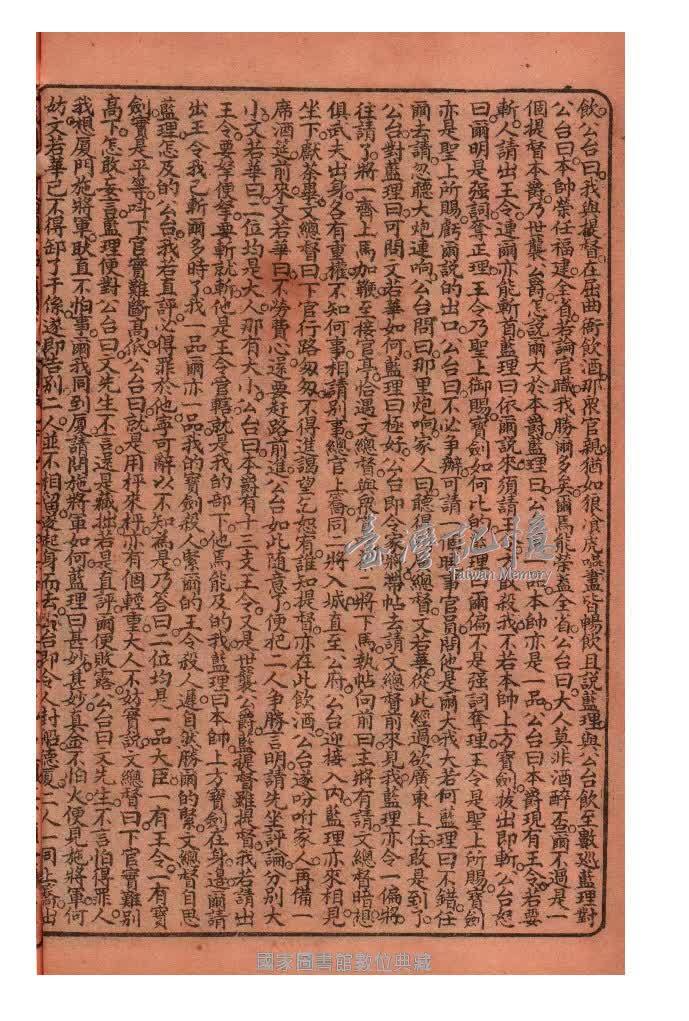 飲公台曰我與提督在屈曲衙飲酒那眾官親猶如狼飡虎嚥盡皆暢飲且說藍理與公台飲至數巡藍理對
公台曰本帥榮任福建全省若論官職我勝爾多矣爾馬能榮蓋全省公台曰大人莫非酒醉否爾不過是一
個提督本爵乃世襲公爵怎說爾大於本爵藍理曰公 品本帥亦是一品公台曰本爵現有王令若要
斬人請出王令連爾亦能斬首藍理曰依爾說來須請王 能殺我不若本帥上方寶劍拔出即斬公台怒
曰爾明是强詞奪正理王令乃聖上御賜寶劍如何比的 理曰爾偏不是强詞奪理王令是聖上所賜寶劍
亦是聖上所賜虧爾說的出口公台曰不必爭辦可請一個旺事官員問他是爾大我大若何藍理曰不錯任
爾去請忽聽大炮連响公台問曰那里炮响家人曰聽得 總督文若華從此經過欲廣東上任敢是到了
公台對藍理曰可問文若華如何藍理曰極好公台即令家將帶帖去請文總督前來見我藍理亦令一偏將
往請了將一齊上馬加鞭至接官亭恰遇文總督與眾 二將下馬執帖向前曰主將有請文總督暗想
俱武夫出身各有重權不知何事相請別事總官上轎同二將入城直至公府公台迎接入內藍理亦來相見
坐下獻茶畢文總督曰下官行路匆匆不得進謁望乞恕宥誰知提督亦在此飲酒公台遂吩咐家人再備一
席酒筵前來文若華曰不勞費心還要赶路前進公台如此隨意了便把二人爭勝言明請先坐評論分別大
小文若華曰二位均是大人那有大小公台曰本爵有十三支王令又是世襲公爵藍提督雖提督我若請出
王令要拏便拏要斬就斬他是王令官轄就是我的部下他馬能及的我藍理曰本帥上方寶劍在身邊爾請
出王令我已斬爾多時了我一品爾亦一品我的寶劍殺人緊爾的王令殺人遲自然勝爾的緊文總督自思
藍理怎及的公台我若直評必得罪於他寧可辭以不知為是乃答曰二位均具一品大臣一有王令一有寶
劍實是平等叫下官實難斷高低公台曰就是用秤來秤亦有個輕重大人不妨實說文總督曰下官實難別
高下怎敢妄言藍理便對公台曰文先生不言還是藏拙若是直評爾便敗露公台曰文先生不言怕得罪人
我想厦門施將軍耿直不怕事爾我同到厦請問施將軍如何藍理曰甚妙甚妙真金不怕火便見施將軍何
妨文若華已不得卸了干係遂即告別二人並不相留遂起身而去公台即令人封船德厦二人一同上轎出
臺灣記憶
Taiwan Memory
國家圖書館數位典藏